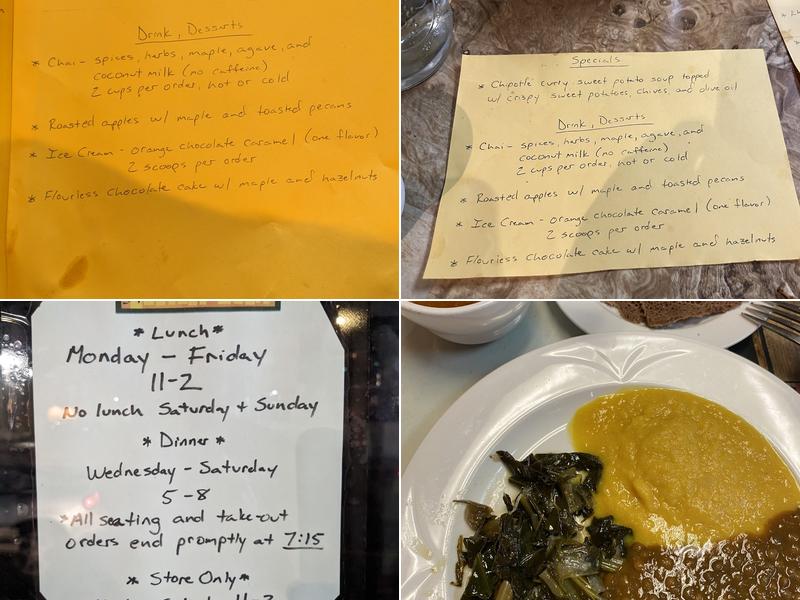 Drink, Desserts
* Chai - spices, herbs, maple, agave, and
coconut milk (no caffeine)
2 cups per order, hot or cold
* Roasted apples w/ maple and toasted pecans
* Ice Cream - orange chocolate caramel (one flavor)
2 scoops per order
* Flourless Chocolate cake w/ maple and hazelnuts
Specials
* Chipotle curry sweet potato soup topped
w/ crispy sweet potatoes, chives, and olive oil
Drink, Desserts
* Chai - spices, herbs, maple, agave, and
coconut milk (no caffeine)
2 cups per order, hot or cold
* Roasted apples w/ maple and toasted pecans
* Ice Cream - orange chocolate caramel (one flavor)
2 scoops per order
* Flourless Chocolate cake w/ maple and hazelnuts
* Lunch *
Monday - Friday
11-2
No lunch Saturday + Sunday
* Dinner *
Wednesday - Saturday
5-8
* All seating and take-out
orders end promptly at 7:15
* Store Only *